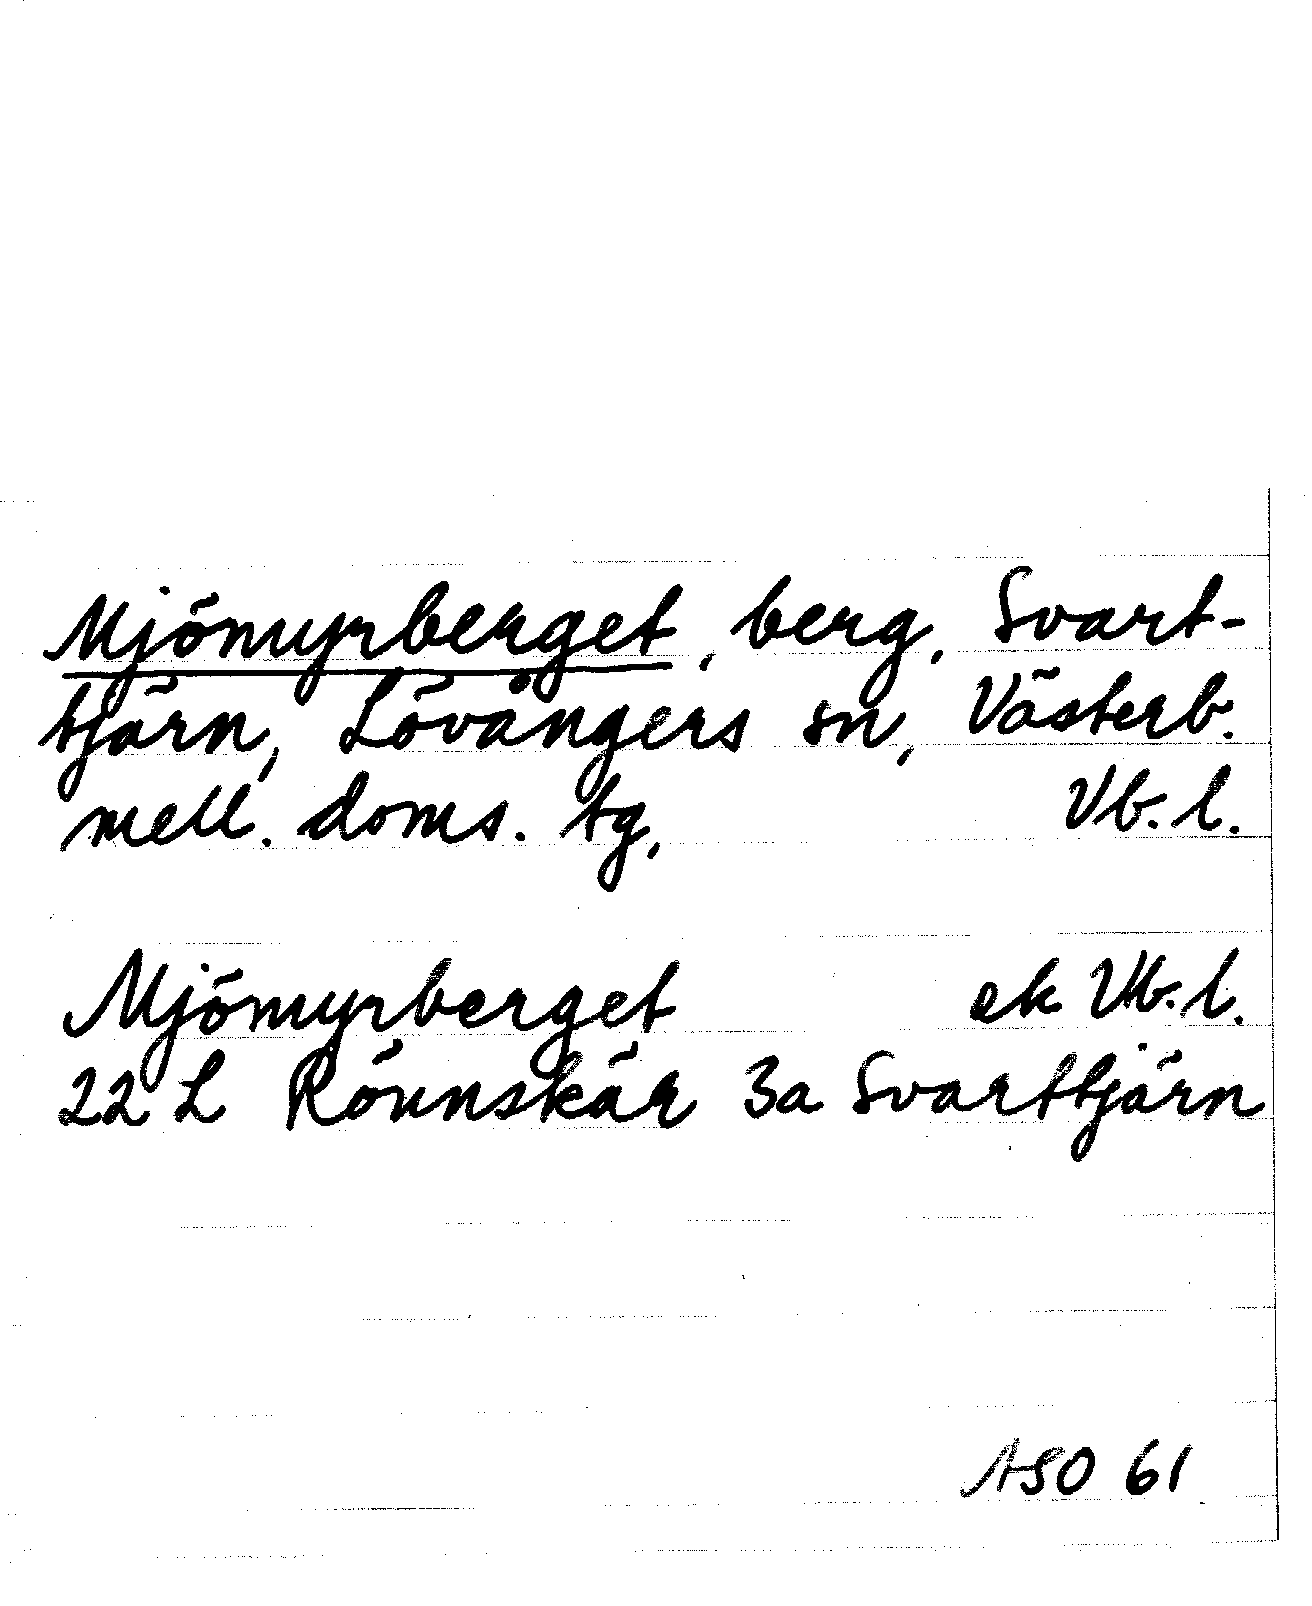 Mjömyrberget, berg, Svart-
tjärn, Lövångers sn, Västerb.
mell. doms. tg, Vb. l.
Mjömyrberget ek Vb. l.
22 L Rönnskär 3a Svarttjärn
ASO 61